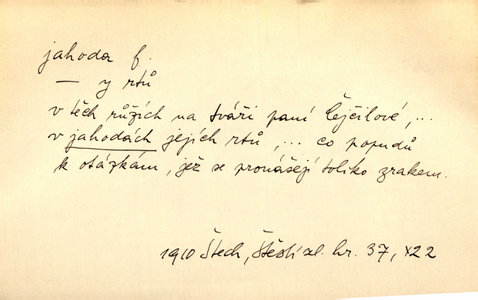 jahoda f.
— y rtů
v těch růžích na tváři paní Čejčilové, ...
v jahodách jejích rtů, ... co popudů
k otázkám, jež se pronášejí toliko zrakem.
1910 Štech, Štěstí zl. hr. 37, x22